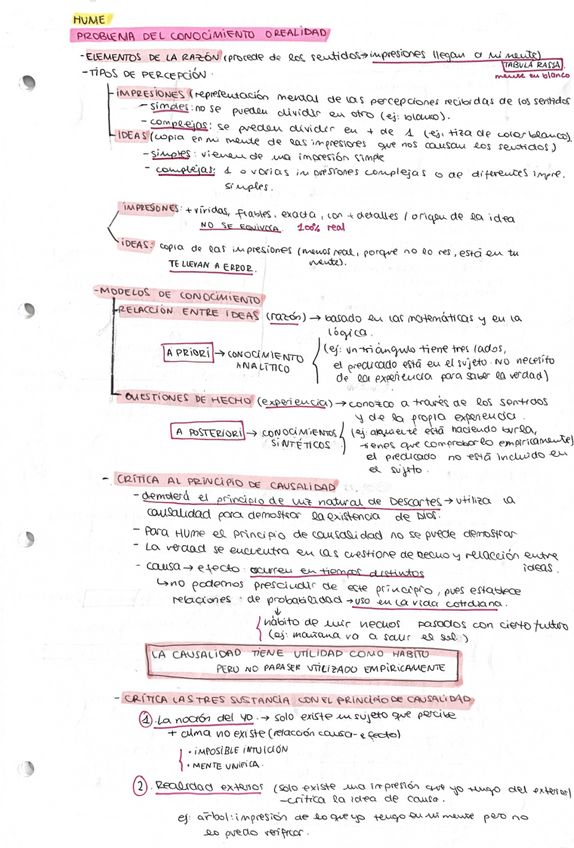 HUME
PROBLEMA DEL CONOCIMIENTO O REALIDAD
- ELEMENTOS DE LA RAZÓN (procede de los sentidos → impresiones llegan a mi mente)
TABULA RASSA
mente en blanco
- TIPOS DE PERCEPCIÓN.
IMPRESIONES (representación mental de las percepciones recibidas de los sentidos
- simples: no se pueden dividir en otro (ej: blanco).
- complejas: se pueden dividir en + de 1 (ej, tiza de color blanco)
IDEAS (copia en mi mente de las impresiones que nos causan los sentidos)
- simples: vienen de una impresión simple
- complejas: 1 o varias impresiones complejas o de diferentes impre.
simples.
IMPRESIONES: + vívidas, fiables, exacta, con + detalles / origen de la idea
NO SE EQUIVOCA. 100% real
IDEAS: copia de las impresiones (menos real, porque no lo ves, está en tu
mente).
TE LLEVAN A ERROR.
- MODELOS DE CONOCIMIENTO
RELACIÓN ENTRE IDEAS (razón) → basado en las matemáticas y en la
lógica.
A PRIORI → CONOCIMIENTO
ANALÍTICO
(ej: un triángulo tiene tres lados,
el predicado está en el sujeto. NO necesito
de la experiencia para saber la verdad)
CUESTIONES DE HECHO (experiencia) → conozco a través de los sentidos
y de la propia experiencia.
A POSTERIORI → CONOCIMIENTOS
SINTÉTICOS
(ej: alguien está haciendo burla,
tienes que comprobarlo empíricamente)
el predicado no está incluido en
el sujeto.
- CRÍTICA AL PRINCIPIO DE CAUSALIDAD
- demolerá el principio de luz natural de Descartes → utiliza la
causalidad para demostrar la existencia de Dios.
- Para HUME el principio de causalidad no se puede demostrar
- La verdad se encuentra en las cuestione de hecho y relación entre
ideas.
- causa → efecto: ocurren en tiempos distintos
↳ no podemos prescindir de este principio, pues establece
relaciones de probabilidad → uso en la vida cotidiana.
↓
hábito de unir hechos pasados con cierto futuro
(ej: mañana va a salir el sol)
LA CAUSALIDAD TIENE UTILIDAD COMO HÁBITO
PERO NO PARA SER UTILIZADO EMPÍRICAMENTE
- CRÍTICA LAS TRES SUSTANCIA CON EL PRINCIPIO DE CAUSALIDAD
1. La noción del yo. → solo existe un sujeto que percibe
+ alma no existe (relación causa-efecto)
• IMPOSIBLE INTUICIÓN
• MENTE UNIFICA.
2. Realidad exterior (solo existe una impresión que yo tengo del exterior)
- crítica la idea de causa.
ej: árbol: impresión de lo que yo tengo en mi mente pero no
lo puedo verificar.